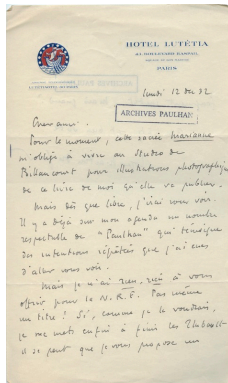 HOTEL LUTÉTIA
43, BOULEVARD RASPAIL
PARIS
ARCHIVES PAULHAN
lundi 12 dec 32
ARCHIVES PAULHAN
Cher ami.
Pour le moment, cette sacrée Marianne
m'oblige à vivre au studio de
Billancourt pour illustrations photographiques
de ce livre de moi qu'elle va publier.
Mais dès que libre, j'irai vous voir.
Il y a déjà sur mon agenda un nombre
respectable de "Paulhan" qui témoigne
des intentions répétées que j'ai eues
d'aller vous voir.
Mais je n'ai rien, rien à vous
offrir pour la N.R.F. Pas même
un titre ! Si, comme je le voudrais,
je me mets enfin à finir les Thibault
il se peut que je vous propose un